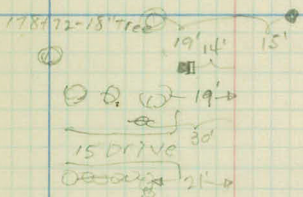 178+72-18" Tree
19' 15'
14'
19'
30'
15 Drive
21'